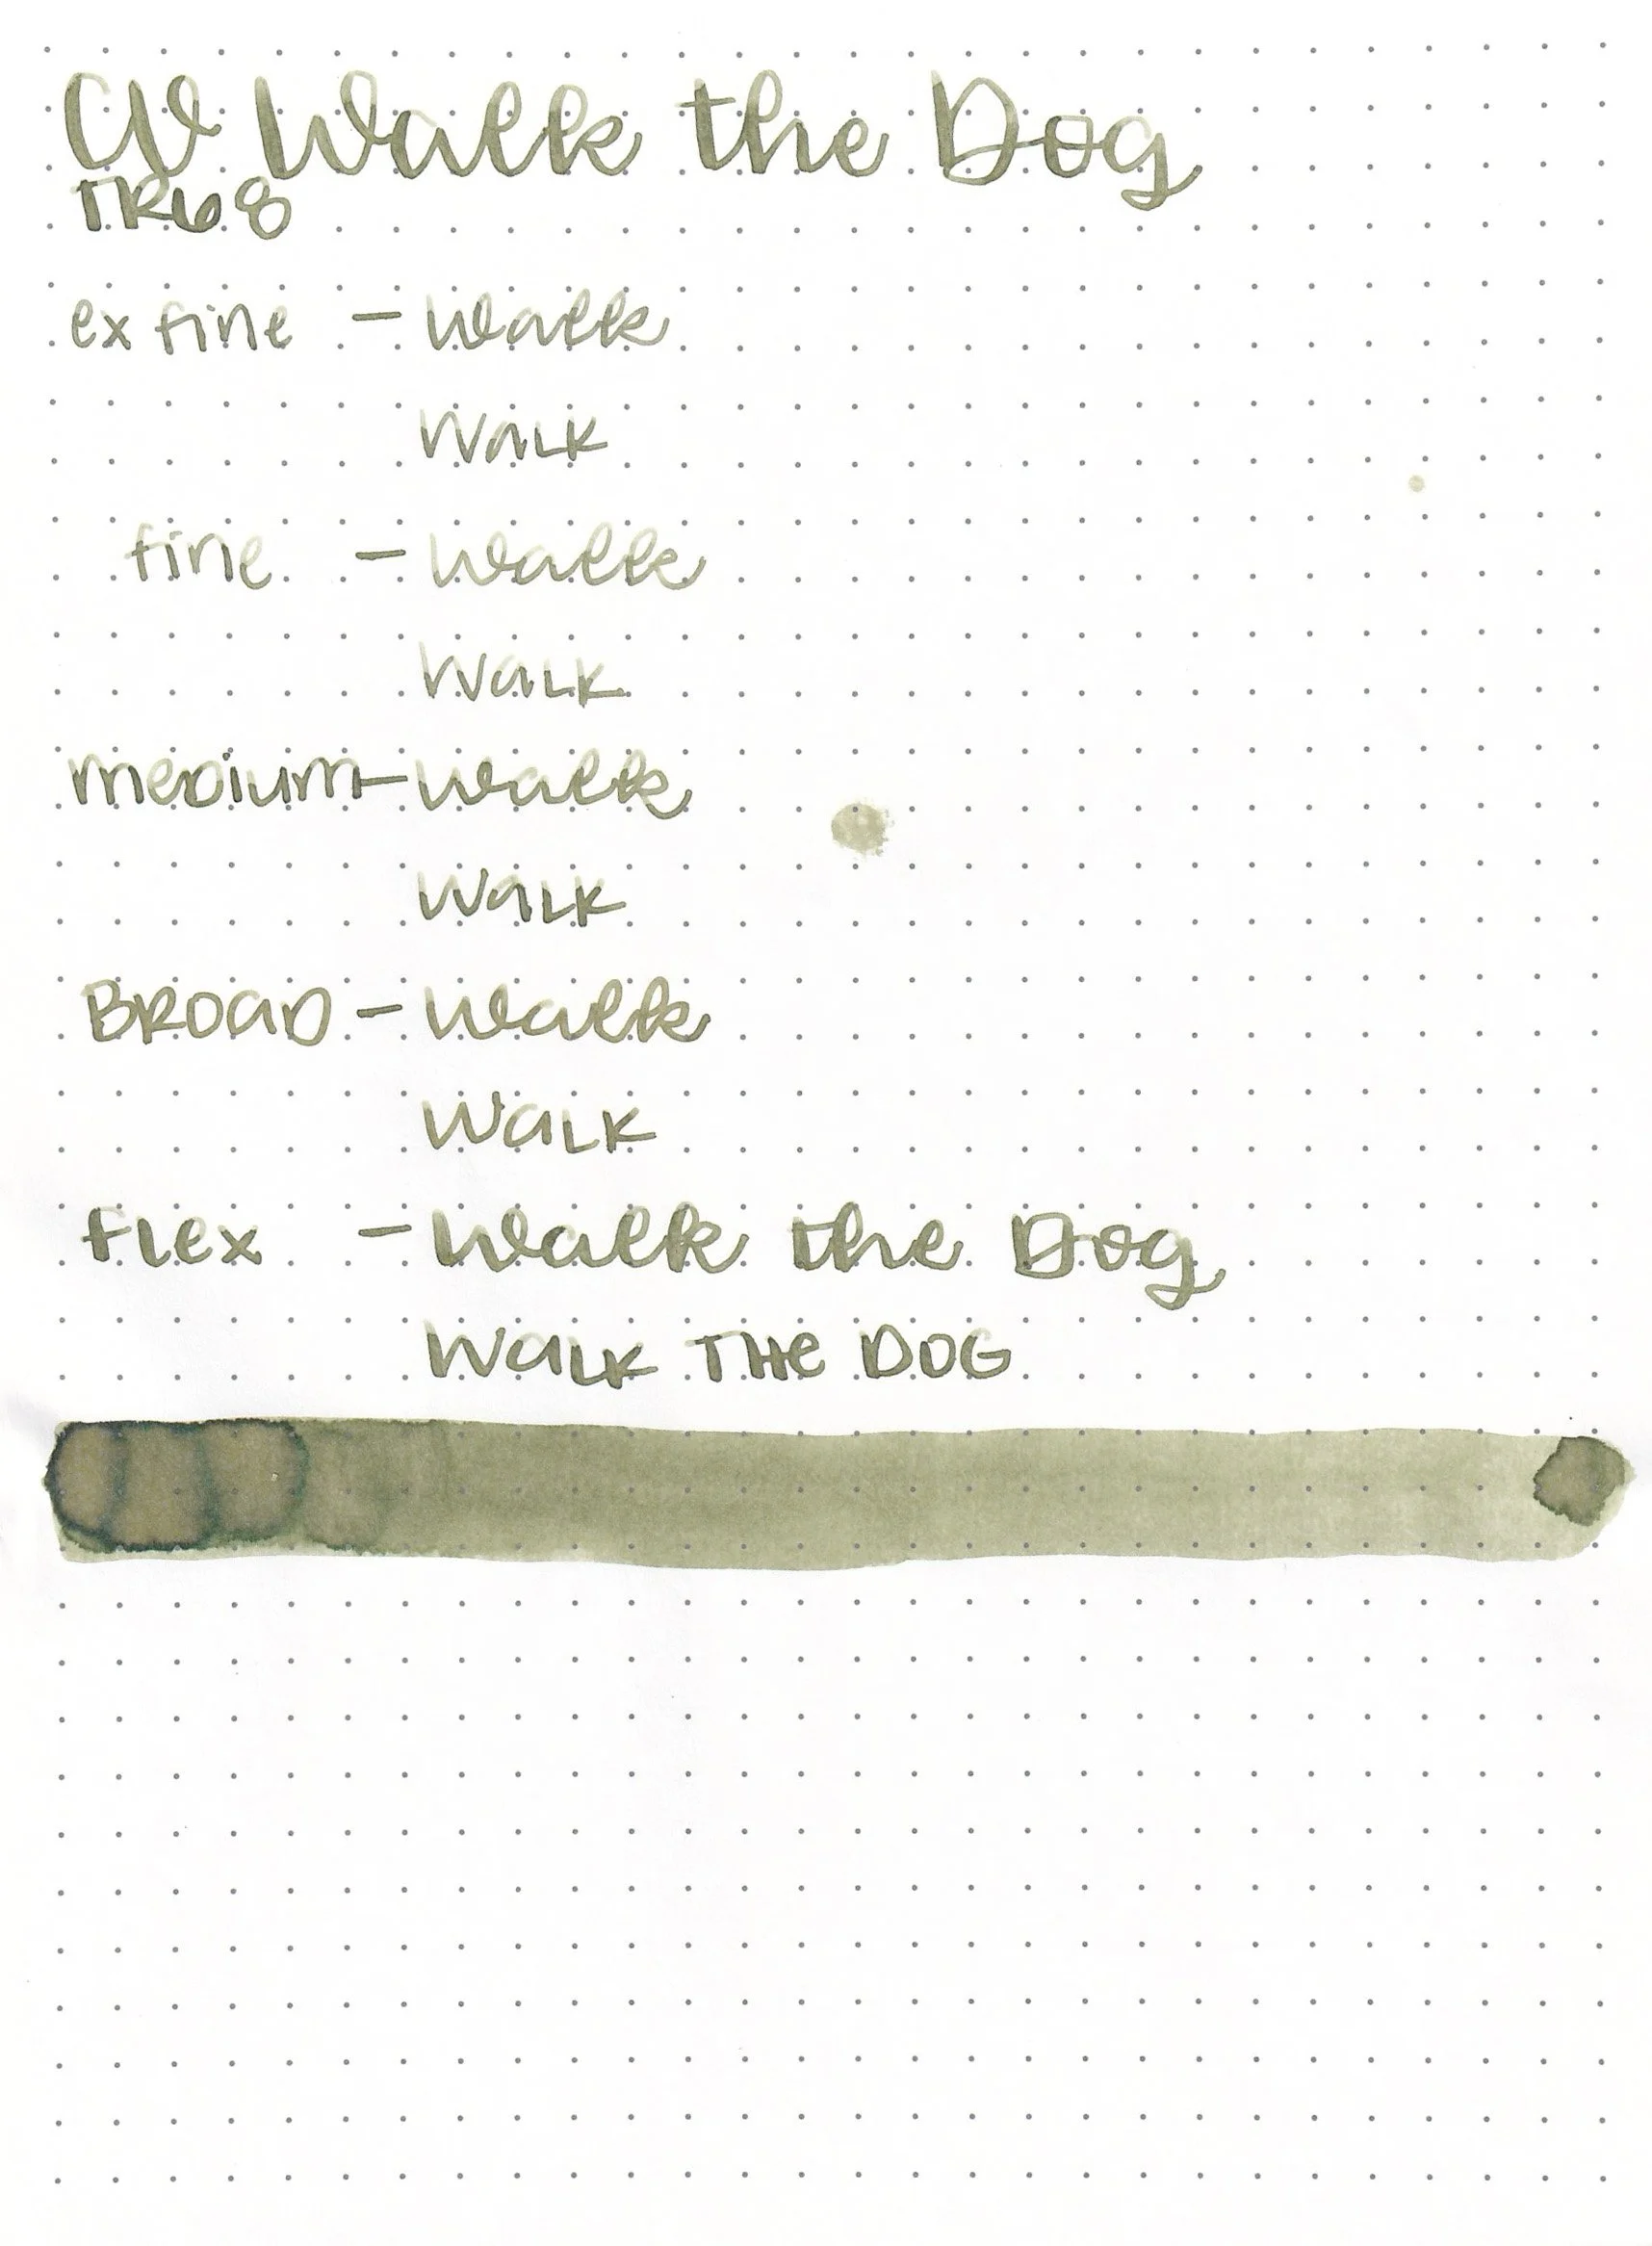 CV Walk the Dog
TR68
ex fine - Walk
WaLK
fine - Walk
WaLK
meDium - Walk
WaLK
BROaD - Walk
WaLK
fLex - Walk the Dog
WaLK THe DOG